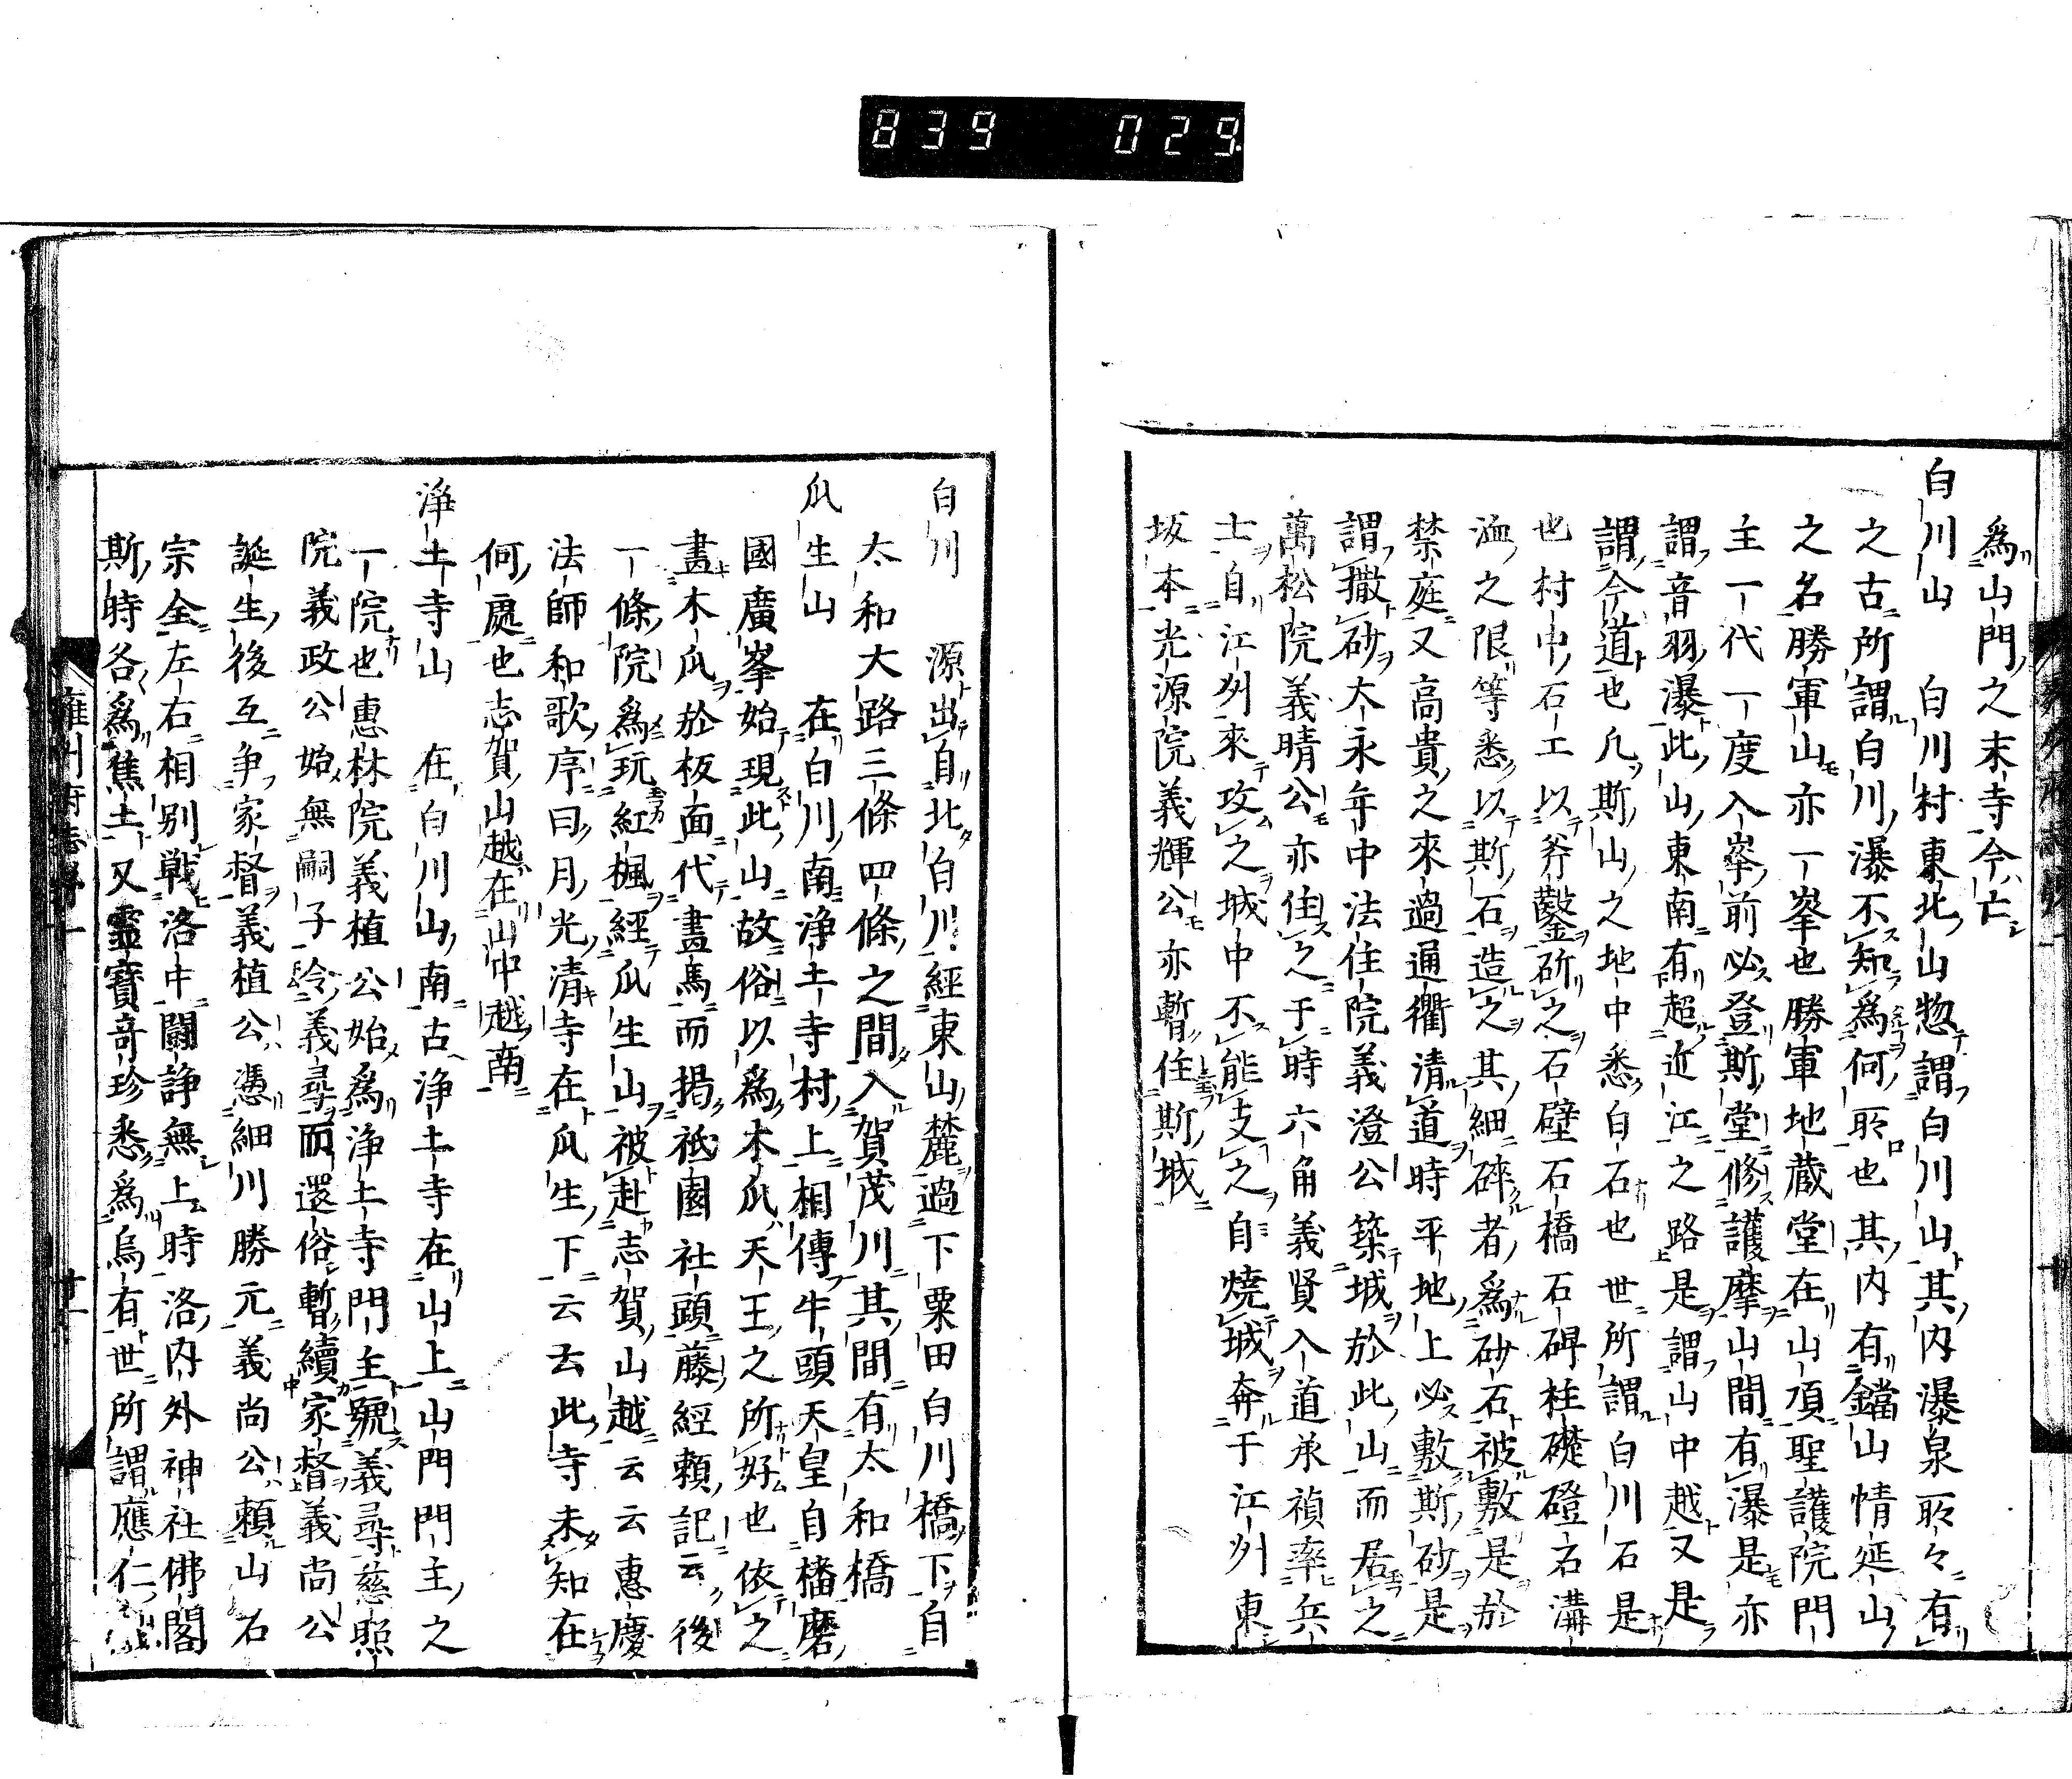 839 029
為山門之末寺今亡
白川山 白川村東北山惣謂白川山其内瀑泉所々有
之古所謂白川瀑不知為何所也其内有鐺山情延山
之名勝軍山亦一峯也勝軍地蔵堂在山頂聖護院門
主一代一度入峯前必登斯堂修護摩山間有瀑是亦
謂音羽瀑此山東南有超近江之路是謂山中越又是
謂今道也凡斯山之地中悉白石也世所謂白川石是
也村中石工以斧鑿斫之石壁石橋石碑柱礎磴石溝
洫之限等悉以斯石造之其細碎者為砂石被敷是於
禁庭又高貴之來過通衢清道時平地上必敷斯砂是
謂撒砂大永年中法住院義澄公築城於此山而居之
萬松院義晴公亦住之于時六角義賢入道承禎率兵
士自江州來攻之城中不能支之自燒城奔于江州東
坂本光源院義輝公亦暫住斯城
白川 源出自北白川經東山麓過下粟田白川橋下自
大和大路三條四條之間入賀茂川其間有大和橋
瓜生山 在白川南浄土寺村上相傳牛頭天皇自橎磨
國廣峯始現此山故俗以為木瓜天王之所好也依之
畫木瓜於板面代畫馬而掲祗園社頭藤經頼記云後
一條院為玩紅楓經瓜生山被赴志賀山越云云惠慶
法師和歌序曰月光清寺在瓜生下云云此寺未知在
何處也志賀山越在山中越南
浄土寺山 在白川山南古浄土寺在山上山門門主之
一院也惠林院義植公始為浄土寺門主號義尋慈照
院義政公始無嗣子令義尋而還俗暫續家督義尚公
誕生後互争家督義植公憑細川勝元義尚公頼山石
宗全左右相别戦洛中闘諍無止時洛内外神社佛閣
斯時各為焦土又靈寶奇珍悉為烏有世所謂應仁
雍州府志 十一